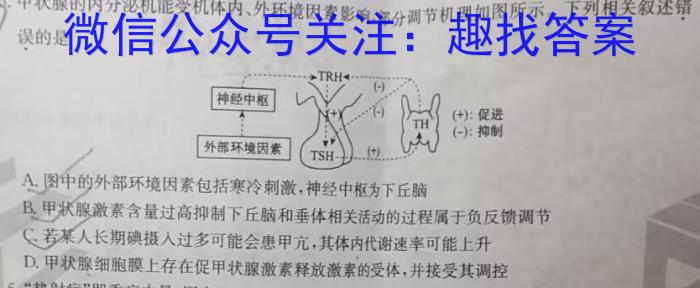 甲状腺的内分泌机能受机体内、外环境因素影响,部分调节机理如图所示。下列相关叙述错
误的是
微信公众号关注：趣找答案
TRH
(-)
神经中枢
(+)
(-)
TH
(+): 促进
(-): 抑制
外部环境因素
TSH
(+)
A. 图中的外部环境因素包括寒冷刺激,神经中枢为下丘脑
B. 甲状腺激素含量过高抑制下丘脑和垂体相关活动的过程属于负反馈调节
C. 若某人长期碘摄入过多可能会患甲亢,其体内代谢速率可能上升
D. 甲状腺细胞膜上存在促甲状腺激素释放激素的受体,并接受其调控